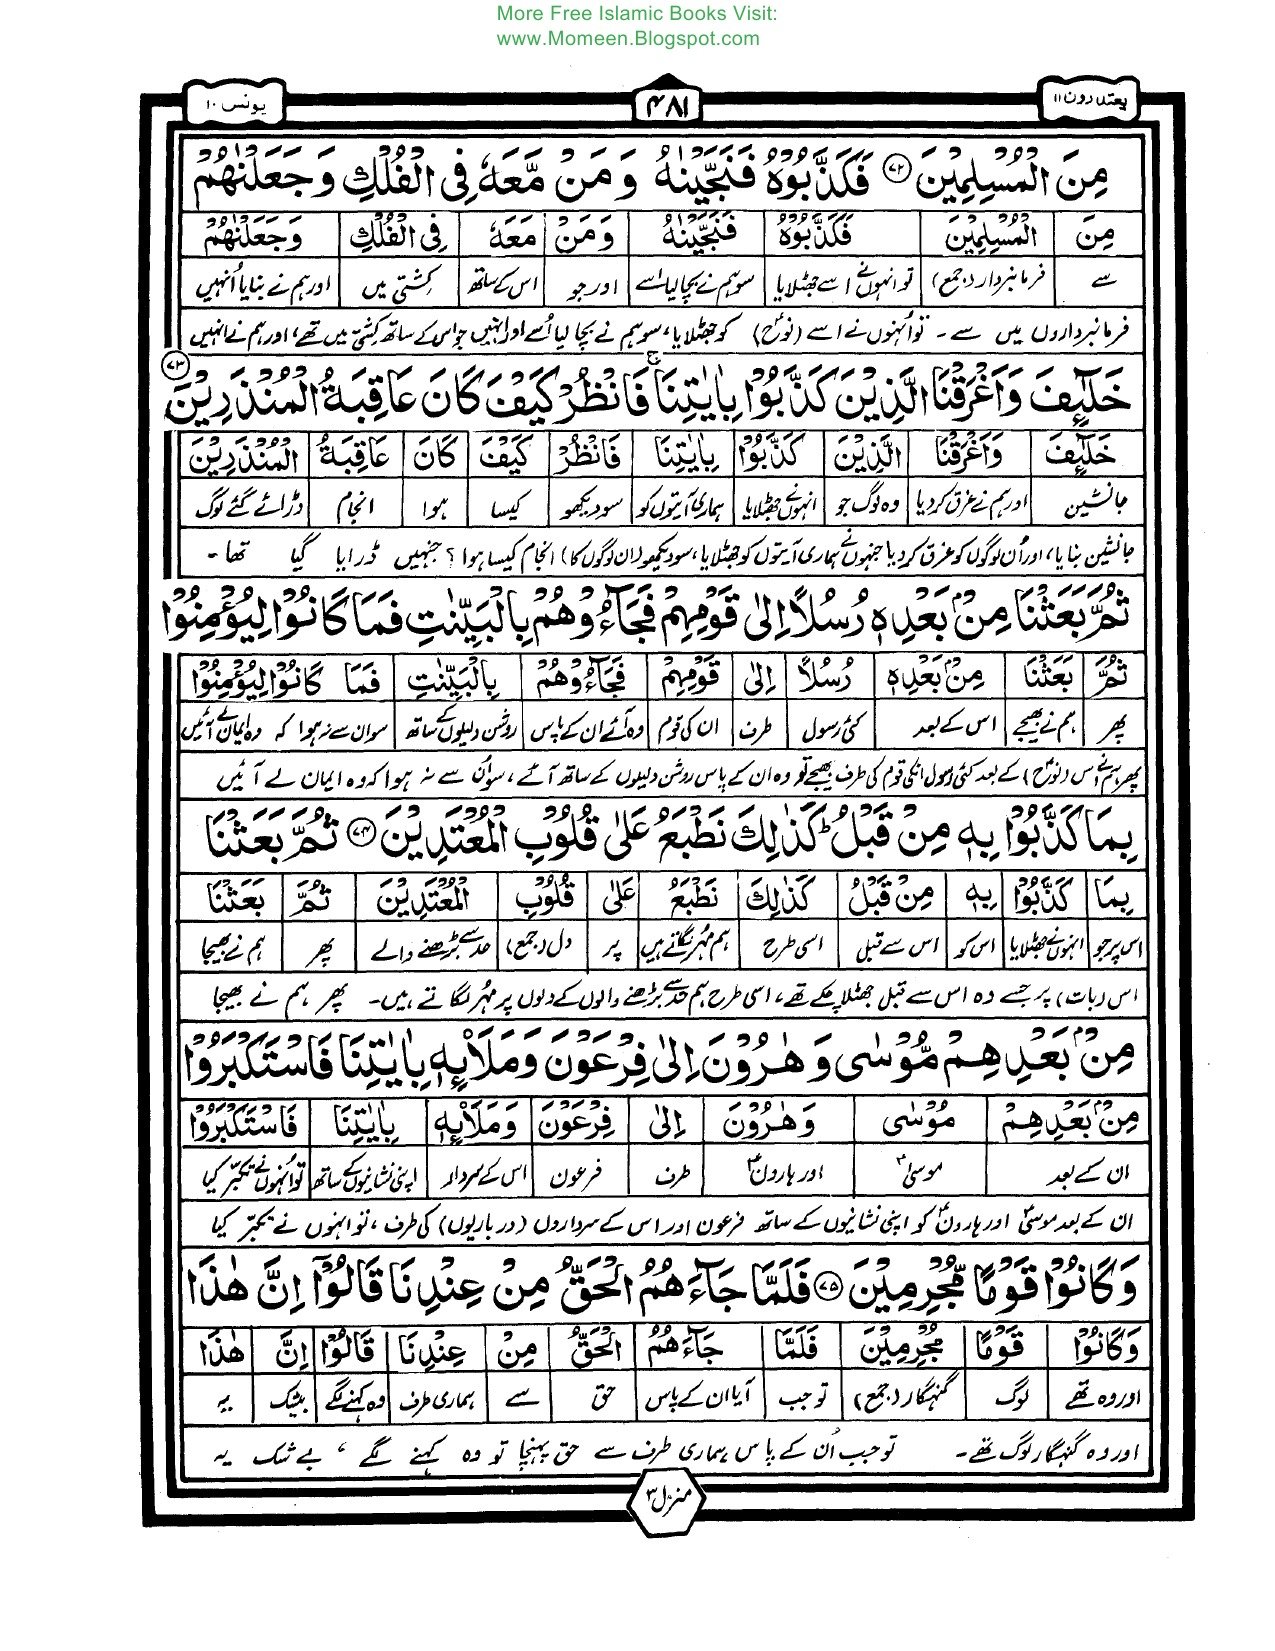 More Free Islamic Books Visit:
www.Momeen.Blogspot.com
یعتذرون ۱۱
۴۸۱
یونس ۱۰
مِنَ الْمُسْلِمِیْنَ ﴿۷۲﴾ فَكَذَّبُوْهُ فَنَجَّیْنٰهُ وَمَنْ مَّعَهٗ فِی الْفُلْكِ وَجَعَلْنٰهُمْ
مِنَ الْمُسْلِمِیْنَ فَكَذَّبُوْهُ فَنَجَّیْنٰهُ وَمَنْ مَعَهٗ فِی الْفُلْكِ وَجَعَلْنٰهُمْ
سے فرمانبردار (جمع) تو انہوں نے اسے جھٹلایا سو ہم نے بچا لیا اسے اور جو اس کے ساتھ کشتی میں اور ہم نے بنایا اُنہیں
فرمانبرداروں میں سے۔ تو اُنہوں نے اسے (نوحؑ) کو جھٹلایا، سو ہم نے بچا لیا اُسے اور انہیں جو اس کے ساتھ کشتی میں تھے، اور ہم نے انہیں
خَلٰٓئِفَ وَاَغْرَقْنَا الَّذِیْنَ كَذَّبُوْا بِاٰیٰتِنَا ۚ فَانْظُرْ كَیْفَ كَانَ عَاقِبَةُ الْمُنْذَرِیْنَ ﴿۷۳﴾
خَلٰٓئِفَ وَاَغْرَقْنَا الَّذِیْنَ كَذَّبُوْا بِاٰیٰتِنَا فَانْظُرْ كَیْفَ كَانَ عَاقِبَةُ الْمُنْذَرِیْنَ
جانشین اور ہم نے غرق کر دیا وہ لوگ جو انہوں نے جھٹلایا ہماری آیتوں کو سو دیکھو کیسا ہوا انجام ڈرائے گئے لوگ
جانشین بنایا، اور اُن لوگوں کو غرق کر دیا جنہوں نے ہماری آیتوں کو جھٹلایا، سو دیکھو (ان لوگوں کا) انجام کیسا ہوا؟ جنہیں ڈرایا گیا تھا۔
ثُمَّ بَعَثْنَا مِنْۢ بَعْدِهٖ رُسُلًا اِلٰی قَوْمِهِمْ فَجَآءُوْهُمْ بِالْبَیِّنٰتِ فَمَا كَانُوْا لِیُؤْمِنُوْا
ثُمَّ بَعَثْنَا مِنْۢ بَعْدِهٖ رُسُلًا اِلٰی قَوْمِهِمْ فَجَآءُوْهُمْ بِالْبَیِّنٰتِ فَمَا كَانُوْا لِیُؤْمِنُوْا
پھر ہم نے بھیجے اس کے بعد کئی رسول طرف ان کی قوم وہ آئے ان کے پاس روشن دلیلوں کے ساتھ سو ان سے نہ ہوا کہ وہ ایمان لے آئیں
پھر ہم نے اس (نوحؑ) کے بعد کئی رسول انکی قوم کی طرف بھیجے تو وہ ان کے پاس روشن دلیلوں کے ساتھ آئے، سو اُن سے نہ ہوا کہ وہ ایمان لے آئیں
بِمَا كَذَّبُوْا بِهٖ مِنْ قَبْلُ ؕ كَذٰلِكَ نَطْبَعُ عَلٰی قُلُوْبِ الْمُعْتَدِیْنَ ﴿۷۴﴾ ثُمَّ بَعَثْنَا
بِمَا كَذَّبُوْا بِهٖ مِنْ قَبْلُ كَذٰلِكَ نَطْبَعُ عَلٰی قُلُوْبِ الْمُعْتَدِیْنَ ثُمَّ بَعَثْنَا
اس پر جو انہوں نے جھٹلایا اس کو اس سے قبل اسی طرح ہم مُہر لگاتے ہیں پر دل (جمع) حد سے بڑھنے والے پھر ہم نے بھیجا
اس (بات) پر جسے وہ اس سے قبل جھٹلا چکے تھے، اسی طرح ہم حد سے بڑھنے والوں کے دلوں پر مُہر لگاتے ہیں۔ پھر ہم نے بھیجا
مِنْۢ بَعْدِهِمْ مُّوْسٰی وَهٰرُوْنَ اِلٰی فِرْعَوْنَ وَمَلَا۟ئِهٖ بِاٰیٰتِنَا فَاسْتَكْبَرُوْا
مِنْۢ بَعْدِهِمْ مُوْسٰی وَهٰرُوْنَ اِلٰی فِرْعَوْنَ وَمَلَا۟ئِهٖ بِاٰیٰتِنَا فَاسْتَكْبَرُوْا
ان کے بعد موسیٰؑ اور ہارونؑ طرف فرعون اس کے سردار اپنی نشانیوں کے ساتھ تو اُنہوں نے تکبّر کیا
ان کے بعد موسیٰؑ اور ہارونؑ کو اپنی نشانیوں کے ساتھ فرعون اور اس کے سرداروں (درباریوں) کی طرف، تو انہوں نے تکبّر کیا
وَكَانُوْا قَوْمًا مُّجْرِمِیْنَ ﴿۷۵﴾ فَلَمَّا جَآءَهُمُ الْحَقُّ مِنْ عِنْدِنَا قَالُوْۤا اِنَّ هٰذَا
وَكَانُوْا قَوْمًا مُجْرِمِیْنَ فَلَمَّا جَآءَهُمُ الْحَقُّ مِنْ عِنْدِنَا قَالُوْۤا اِنَّ هٰذَا
اور وہ تھے لوگ گنہگار (جمع) تو جب آیا ان کے پاس حق سے ہماری طرف وہ کہنے لگے بیشک یہ
اور وہ گنہگار لوگ تھے۔ تو جب اُن کے پاس ہماری طرف سے حق پہنچا تو وہ کہنے لگے، بے شک یہ
منزل ۳